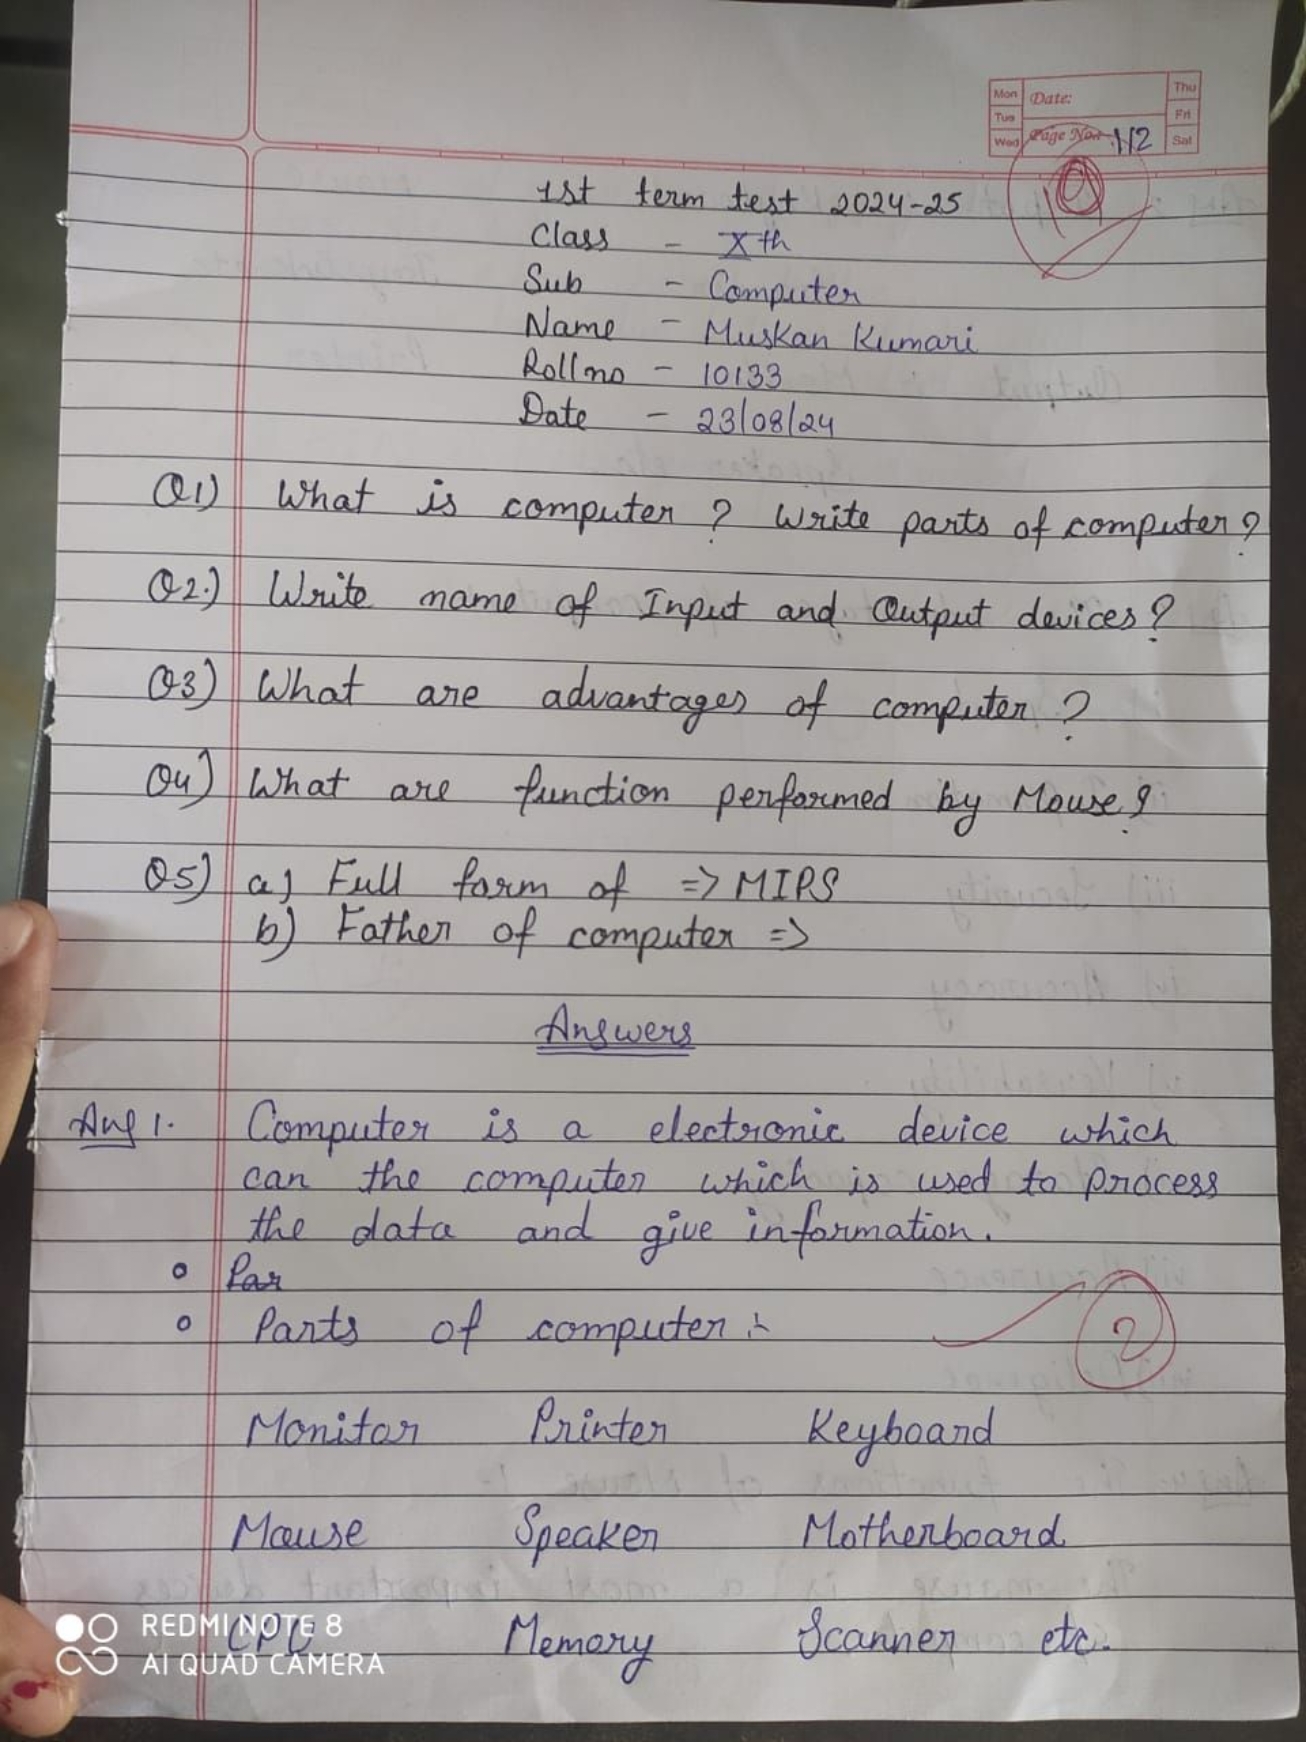 Mon Date: Thu
Tue Fri
Wed Page No. 1/2 Sat
1st term test 2024-25
Class - Xth
Sub - Computer
Name - Muskan Kumari
Roll no - 10133
Date - 23/08/24
Q1) What is computer ? Write parts of computer?
Q2.) Write name of Input and Output devices?
Q3) What are advantages of computer ?
Q4) What are function performed by Mouse?
Q5) a) Full form of => MIPS
b) Father of computer =>
Answers
Ans 1. Computer is a electronic device which
can the computer which is used to process
the data and give information.
Par
Parts of computer :-
2
Monitor Printer Keyboard
Mouse Speaker Motherboard
CPU Memory Scanner etc.
REDMI NOTE 8
AI QUAD CAMERA